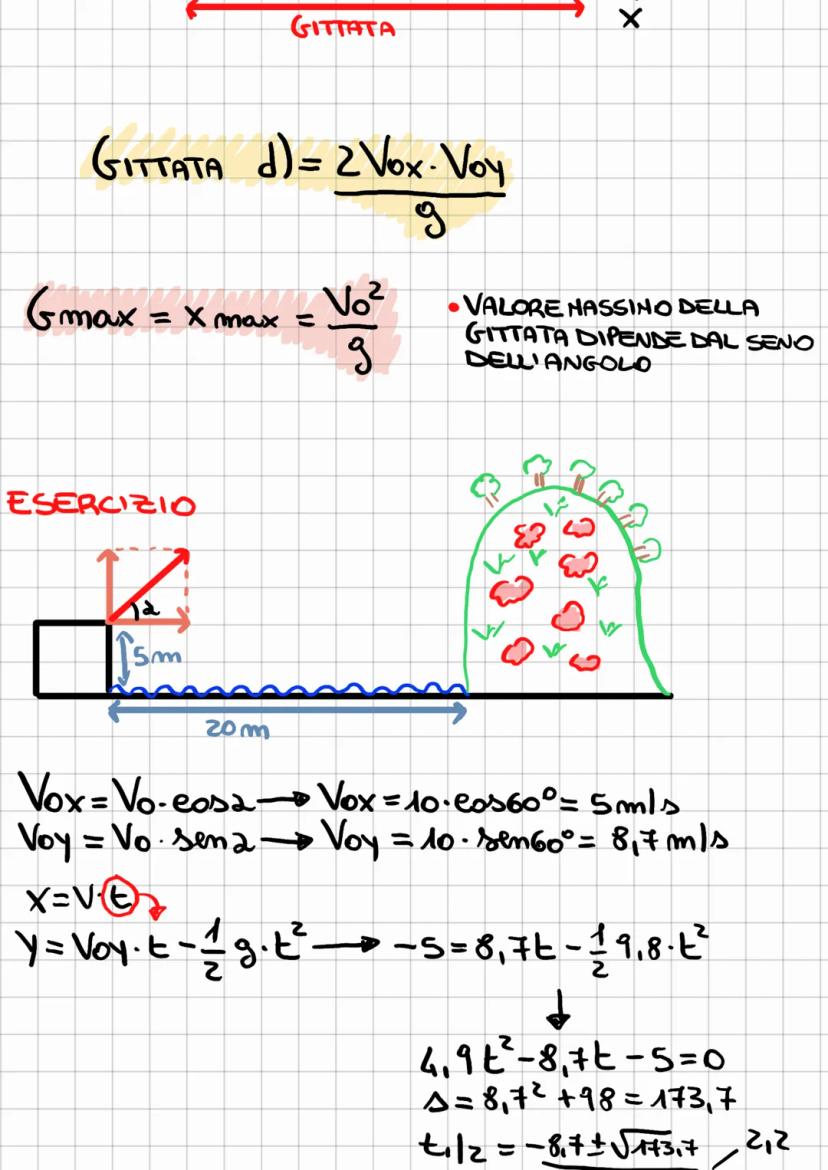 GITTATA
X
GITTATA d) = 2Vox · Voy / g
Gmax = x max = Vo² / g
• VALORE MASSIMO DELLA
GITTATA DIPENDE DAL SENO
DELL'ANGOLO
ESERCIZIO
α
5m
20m
Vox = Vo · cosα → Vox = 10 · cos60° = 5m/s
Voy = Vo · senα → Voy = 10 · sen60° = 8,7m/s
x = V · t
y = Voy · t - 1/2 g · t² → -5 = 8,7t - 1/2 9,8 · t²
4,9t² - 8,7t - 5 = 0
Δ = 8,7² + 98 = 173,7
t1/2 = -8,7 ± √173,7 2,2